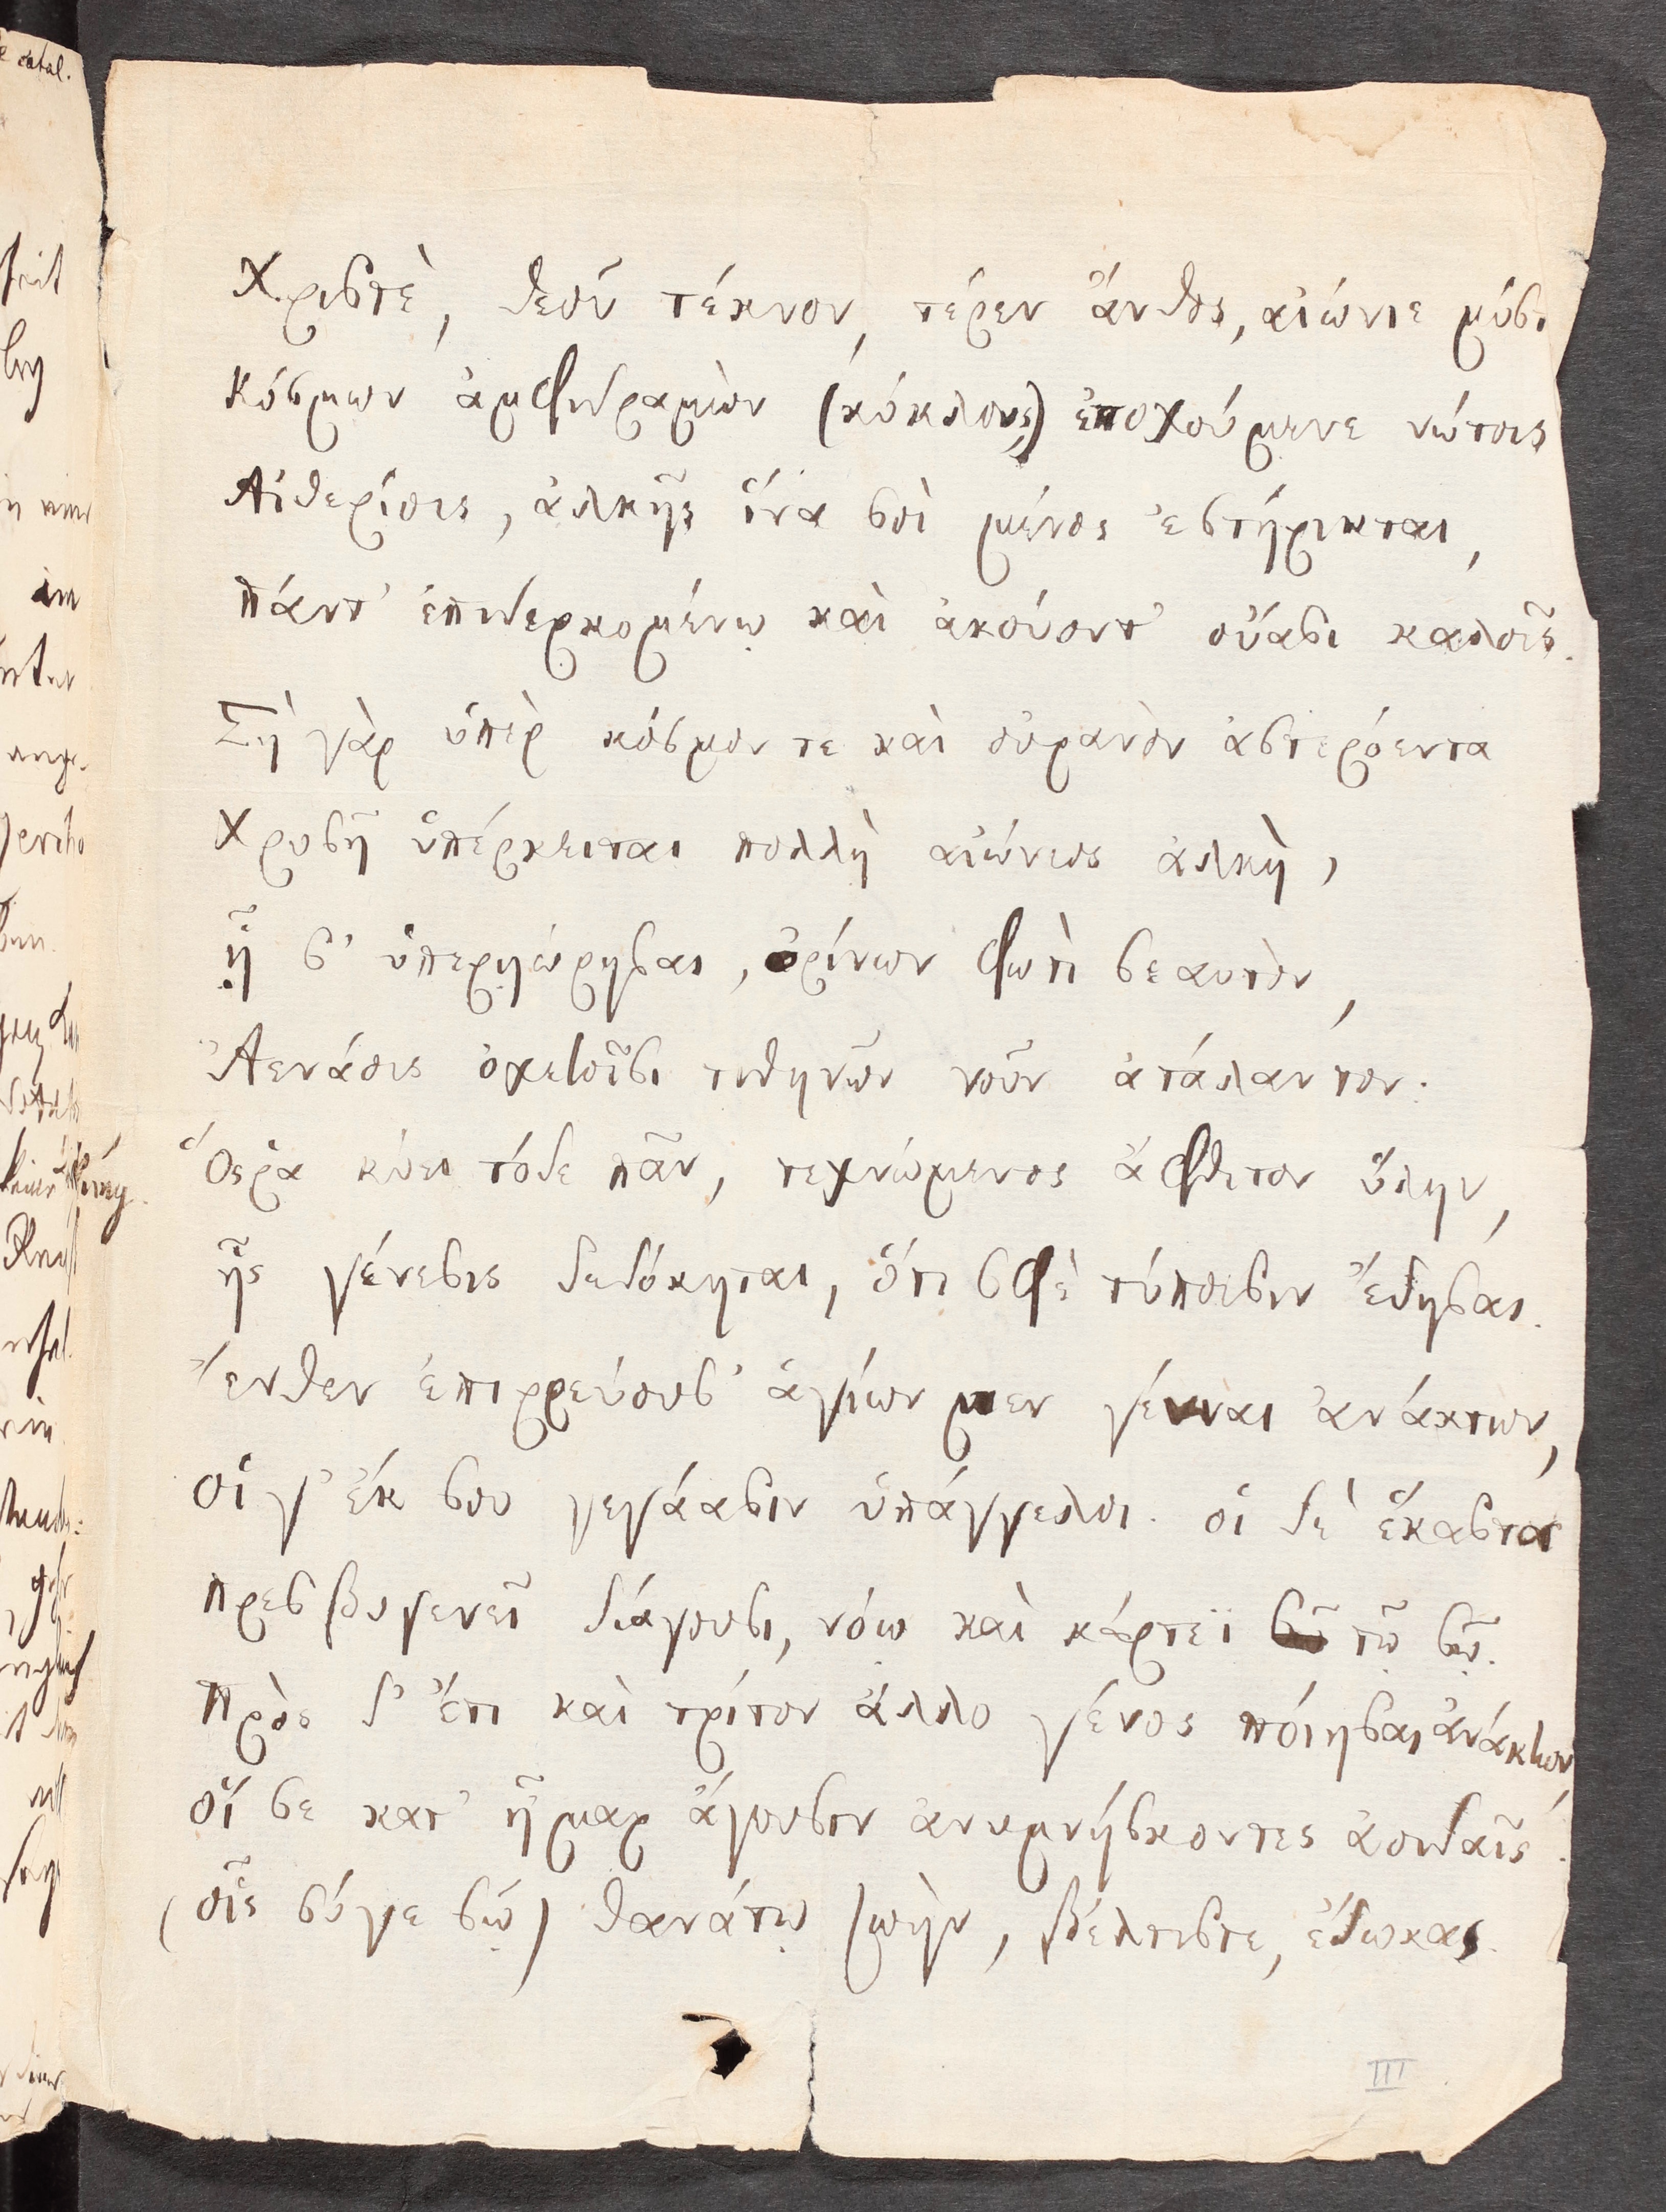 Χριστὲ, θεοῦ τέκνον, τέρεν ἄνθος, αἰώνιε μύστι
Κόσμων ἀμφιδραμὼν (κύκλους) ἐποχούμενε νώτοις
Αἰθερίοις, ἀλκῆς ἵνα σοὶ μένος ἐστήρικται,
πάντ' ἐπιδερκομένῳ καὶ ἀκούοντ' οὔασι καλοῖς.
Σὴ γὰρ ὑπὲρ κόσμον τε καὶ οὐρανὸν ἀστερόεντα
Χρυσῆ ὑπέρκειται πολλὴ αἰώνιος ἀλκὴ,
ᾗ σ' ὑπερῃώρησαι, ὀρίνων φωτὶ σεαυτὸν,
Ἀενάοις ὀχετοῖσι τιθηνῶν νοῦν ἀτάλαντον.
Ὅς ῥα κύει τόδε πᾶν, τεχνώμενος ἄφθιτον ὕλην,
ἧς γένεσις δεδόκηται, ὅτι σφὲ τύποισιν ἔδησαι.
Ἔνθεν ἐπιρρεύουσ' ἁγίων μεν γένναι ἀνάκτων,
οἵ γ' ἐκ σου γεγάασιν ὑπάγγελοι. οἱ δὲ ἕκαστα
πρεσβυγενεῖ διάγουσι, νόῳ καὶ κάρτεϊ τῷ σῷ.
πρὸς δ' ἔτι καὶ τρίτον ἄλλο γένος πόιησαι ἀνάκτων,
οἵ σε κατ' ἦμαρ ἄγουσιν ἀνυμνήσκοντες ἀοιδαῖς.
(οἷς σύγε σῷ) θανάτῳ ζωὴν, βέλτιστε, ἔδωκας.
III